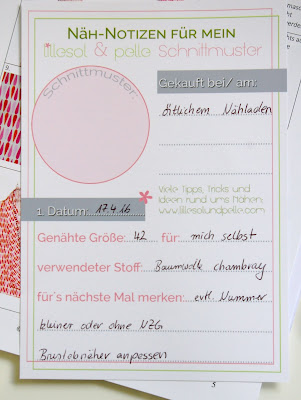 NÄH-NOTIZEN FÜR MEIN
lillesol & pelle Schnittmuster
Schnittmuster:
Gekauft bei/ am:
örtlichem Nähladen
9.
Viele Tipps, Tricks und
Ideen rund ums Nähen:
www.lillesolundpelle.com
1. Datum: 17.4.16
Genähte Größe: 42 für: mich selbst
verwendeter Stoff: Baumwolle chambray
für's nächste Mal merken: evtl. Nummer
kleiner oder ohne NZG
Brustabnäher anpassen
5